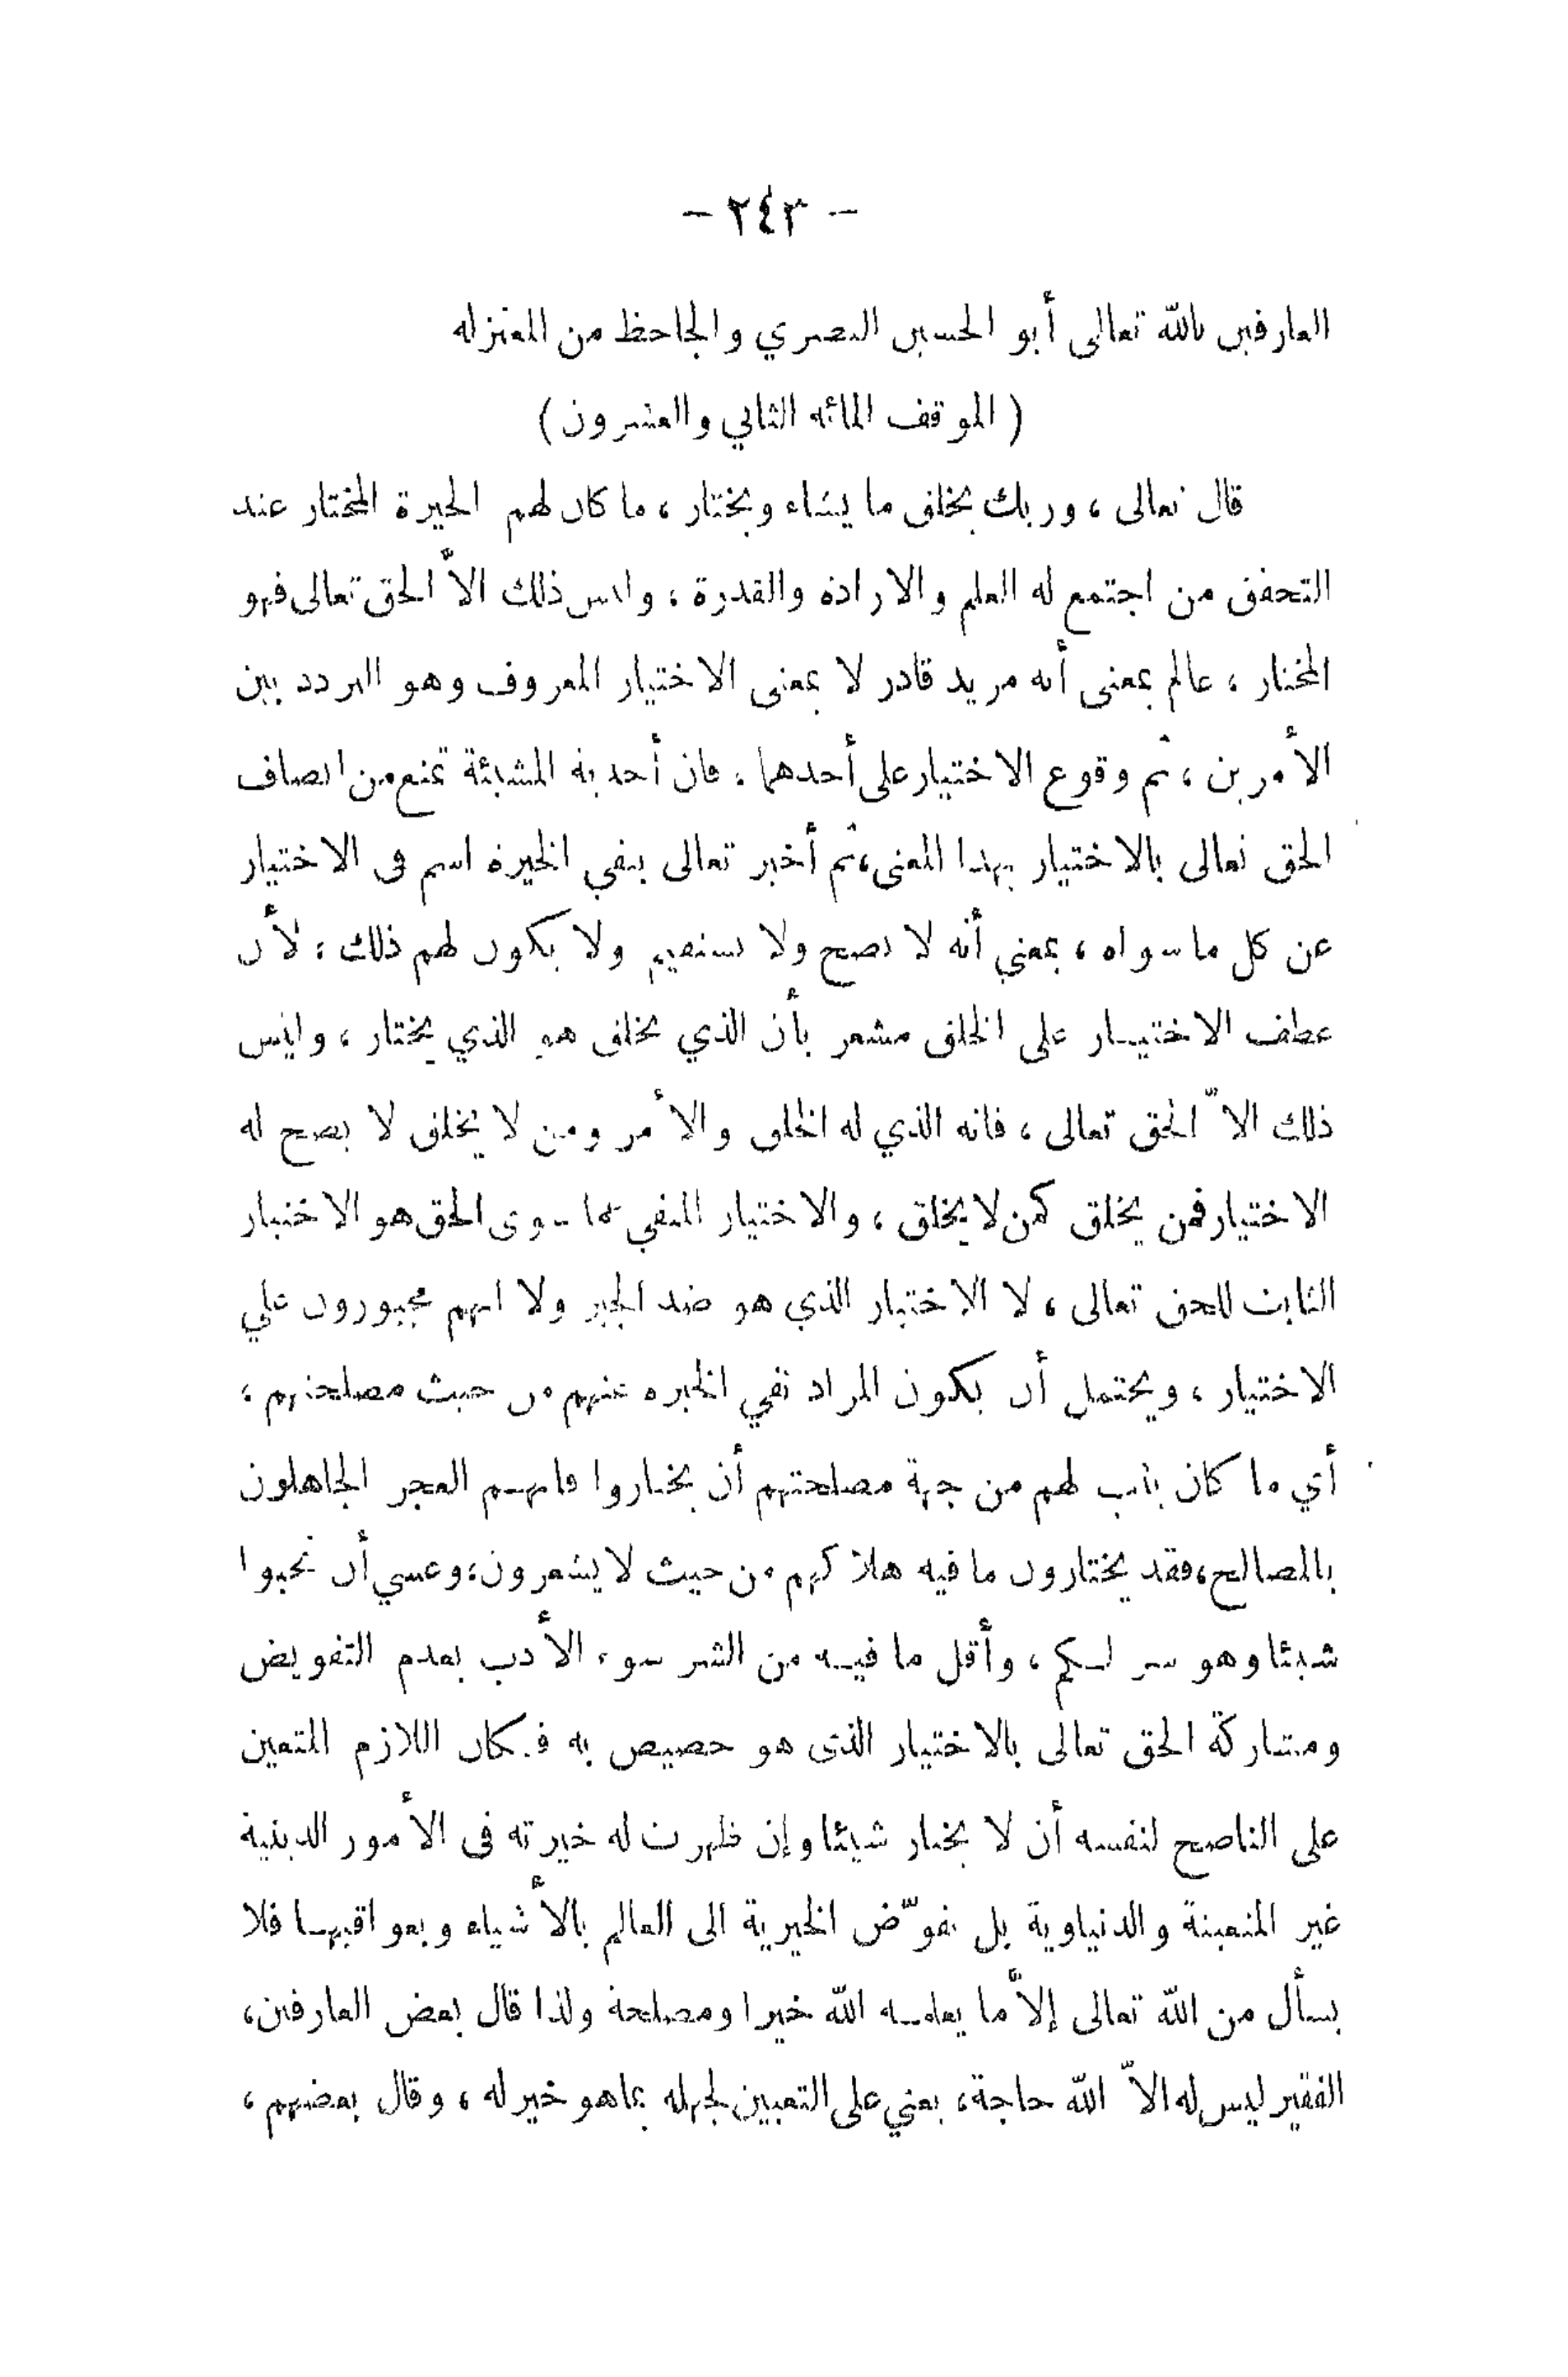 - ٢٤٣ -
العارفين بالله تعالى أبو الحسين البصري والجاحظ من المعتزله
( الموقف المائه الثاني والعشرون )
قال تعالى ، وربك يخلق ما يشاء ويختار ، ما كان لهم الخيرة المختار عند
التحقق من اجتمع له العلم والارادة والقدرة ، وليس ذلك الاّ الحق تعالى فهو
المختار ، عالم بمعنى أنه مريد قادر لا بمعنى الاختيار المعروف وهو التردد بين
الأمرين ، ثم وقوع الاختيار على أحدهما . فان أحدية المشيئة تمنع من اتصاف
الحق تعالى بالاختيار بهذا المعنى ، ثم أخبر تعالى بنفي الخيرة اسم في الاختيار
عن كل ما سواه ، بمعني أنه لا يصح ولا يستقيم ولا يكون لهم ذلك ، لأن
عطف الاختيار على الخلق مشعر بأن الذي يخلق هو الذي يختار ، وليس
ذلك الاّ الحق تعالى ، فانه الذي له الخلق والأمر ومن لا يخلق لا يصح له
الاختيار فمن يخلق كمن لا يخلق ، والاختيار المنفي عما سوى الحق هو الاختيار
الثابت للحق تعالى ، لا الاختيار الذي هو ضد الجبر ولا انهم مجبورون علي
الاختيار ، ويحتمل أن يكون المراد نفي الخيره عنهم من حيث مصلحتهم ،
أي ما كان يناسب لهم من جهة مصلحتهم أن يختاروا فانهم العجز الجاهلون
بالمصالح ، فقد يختارون ما فيه هلاكهم من حيث لا يشعرون ، وعسي أن تحبوا
شيئا وهو شر لكم ، وأقل ما فيه من الشر سوء الأدب بعدم التفويض
ومشاركة الحق تعالى بالاختيار الذى هو خصيص به فكان اللازم المتعين
على الناصح لنفسه أن لا يختار شيئا وإن ظهرت له خيرته فى الأمور الدينية
غير المتعينة والدنياوية بل يفوّض الخيرية الى العالم بالأشياء وبعواقبها فلا
يسأل من الله تعالى إلاّ ما يعلمه الله خيرا ومصلحة ولذا قال بعض العارفين ،
الفقير ليس له الاّ الله حاجة ، يعني على التعيين لجهله بما هو خير له ، وقال بعضهم ،